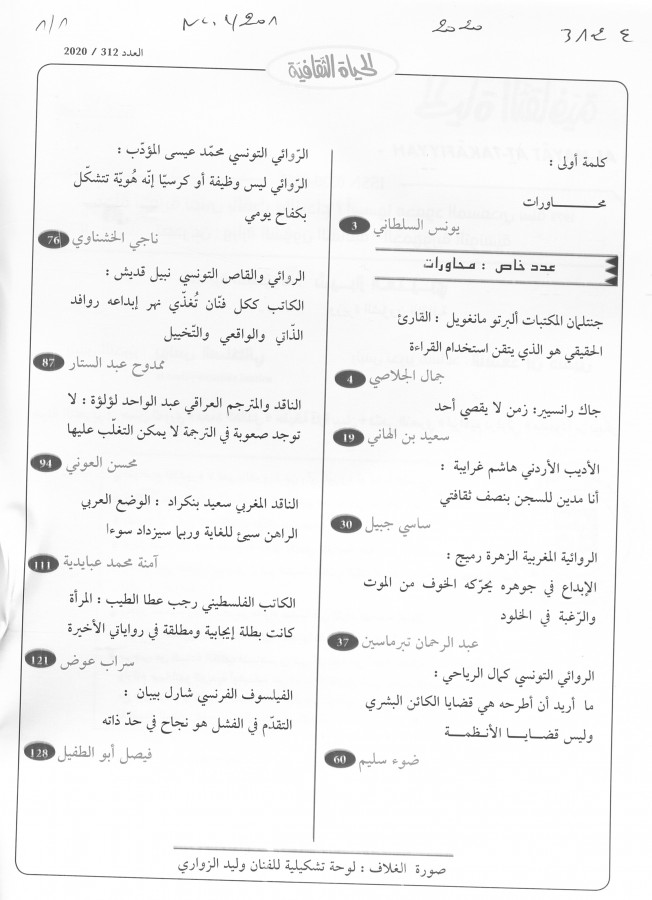 2020
العدد 312 / 2020
الحياة الثقافية
كلمة أولى :
محـــــــاورات
يونس السلطاني 3
عدد خاص : محاورات
جنتلمان المكتبات ألبرتو مانغويل : القارئ
الحقيقي هو الذي يتقن استخدام القراءة
جمال الجلاصي 4
جاك رانسيير: زمن لا يقصي أحد
سعيد بن الهاني 19
الأديب الأردني هاشم غرايبة :
أنا مدين للسجن بنصف ثقافتي
ساسي جبيل 30
الروائية المغربية الزهرة رميج :
الإبداع في جوهره يحرّكه الخوف من الموت
والرّغبة في الخلود
عبد الرحمان تبرماسين 37
الروائي التونسي كمال الرياحي :
ما أريد أن أطرحه هي قضايا الكائن البشري
وليس قضـايـــا الأنـظمـــة
ضوء سليم 60
الرّوائي التونسي محمّد عيسى المؤدّب :
الرّوائي ليس وظيفة أو كرسيّا إنّه هُويّة تتشكّل
بكفاح يومي
ناجي الخشناوي 76
الروائي والقاص التونسي نبيل قديش :
الكاتب ككل فنّان تُغذّي نهر إبداعه روافد
الذّاتي والواقعي والتّخييل
ممدوح عبد الستار 87
الناقد والمترجم العراقي عبد الواحد لؤلؤة : لا
توجد صعوبة في الترجمة لا يمكن التغلّب عليها
محسن العوني 94
الناقد المغربي سعيد بنكراد : الوضع العربي
الراهن سيئ للغاية وربما سيزداد سوءا
آمنة محمد عبايدية 111
الكاتب الفلسطيني رجب عطا الطيب : المرأة
كانت بطلة إيجابية ومطلقة في رواياتي الأخيرة
سراب عوض 121
الفيلسوف الفرنسي شارل بيبان :
التقدّم في الفشل هو نجاح في حدّ ذاته
فيصل أبو الطفيل 128
صورة الغلاف : لوحة تشكيلية للفنان وليد الزواري